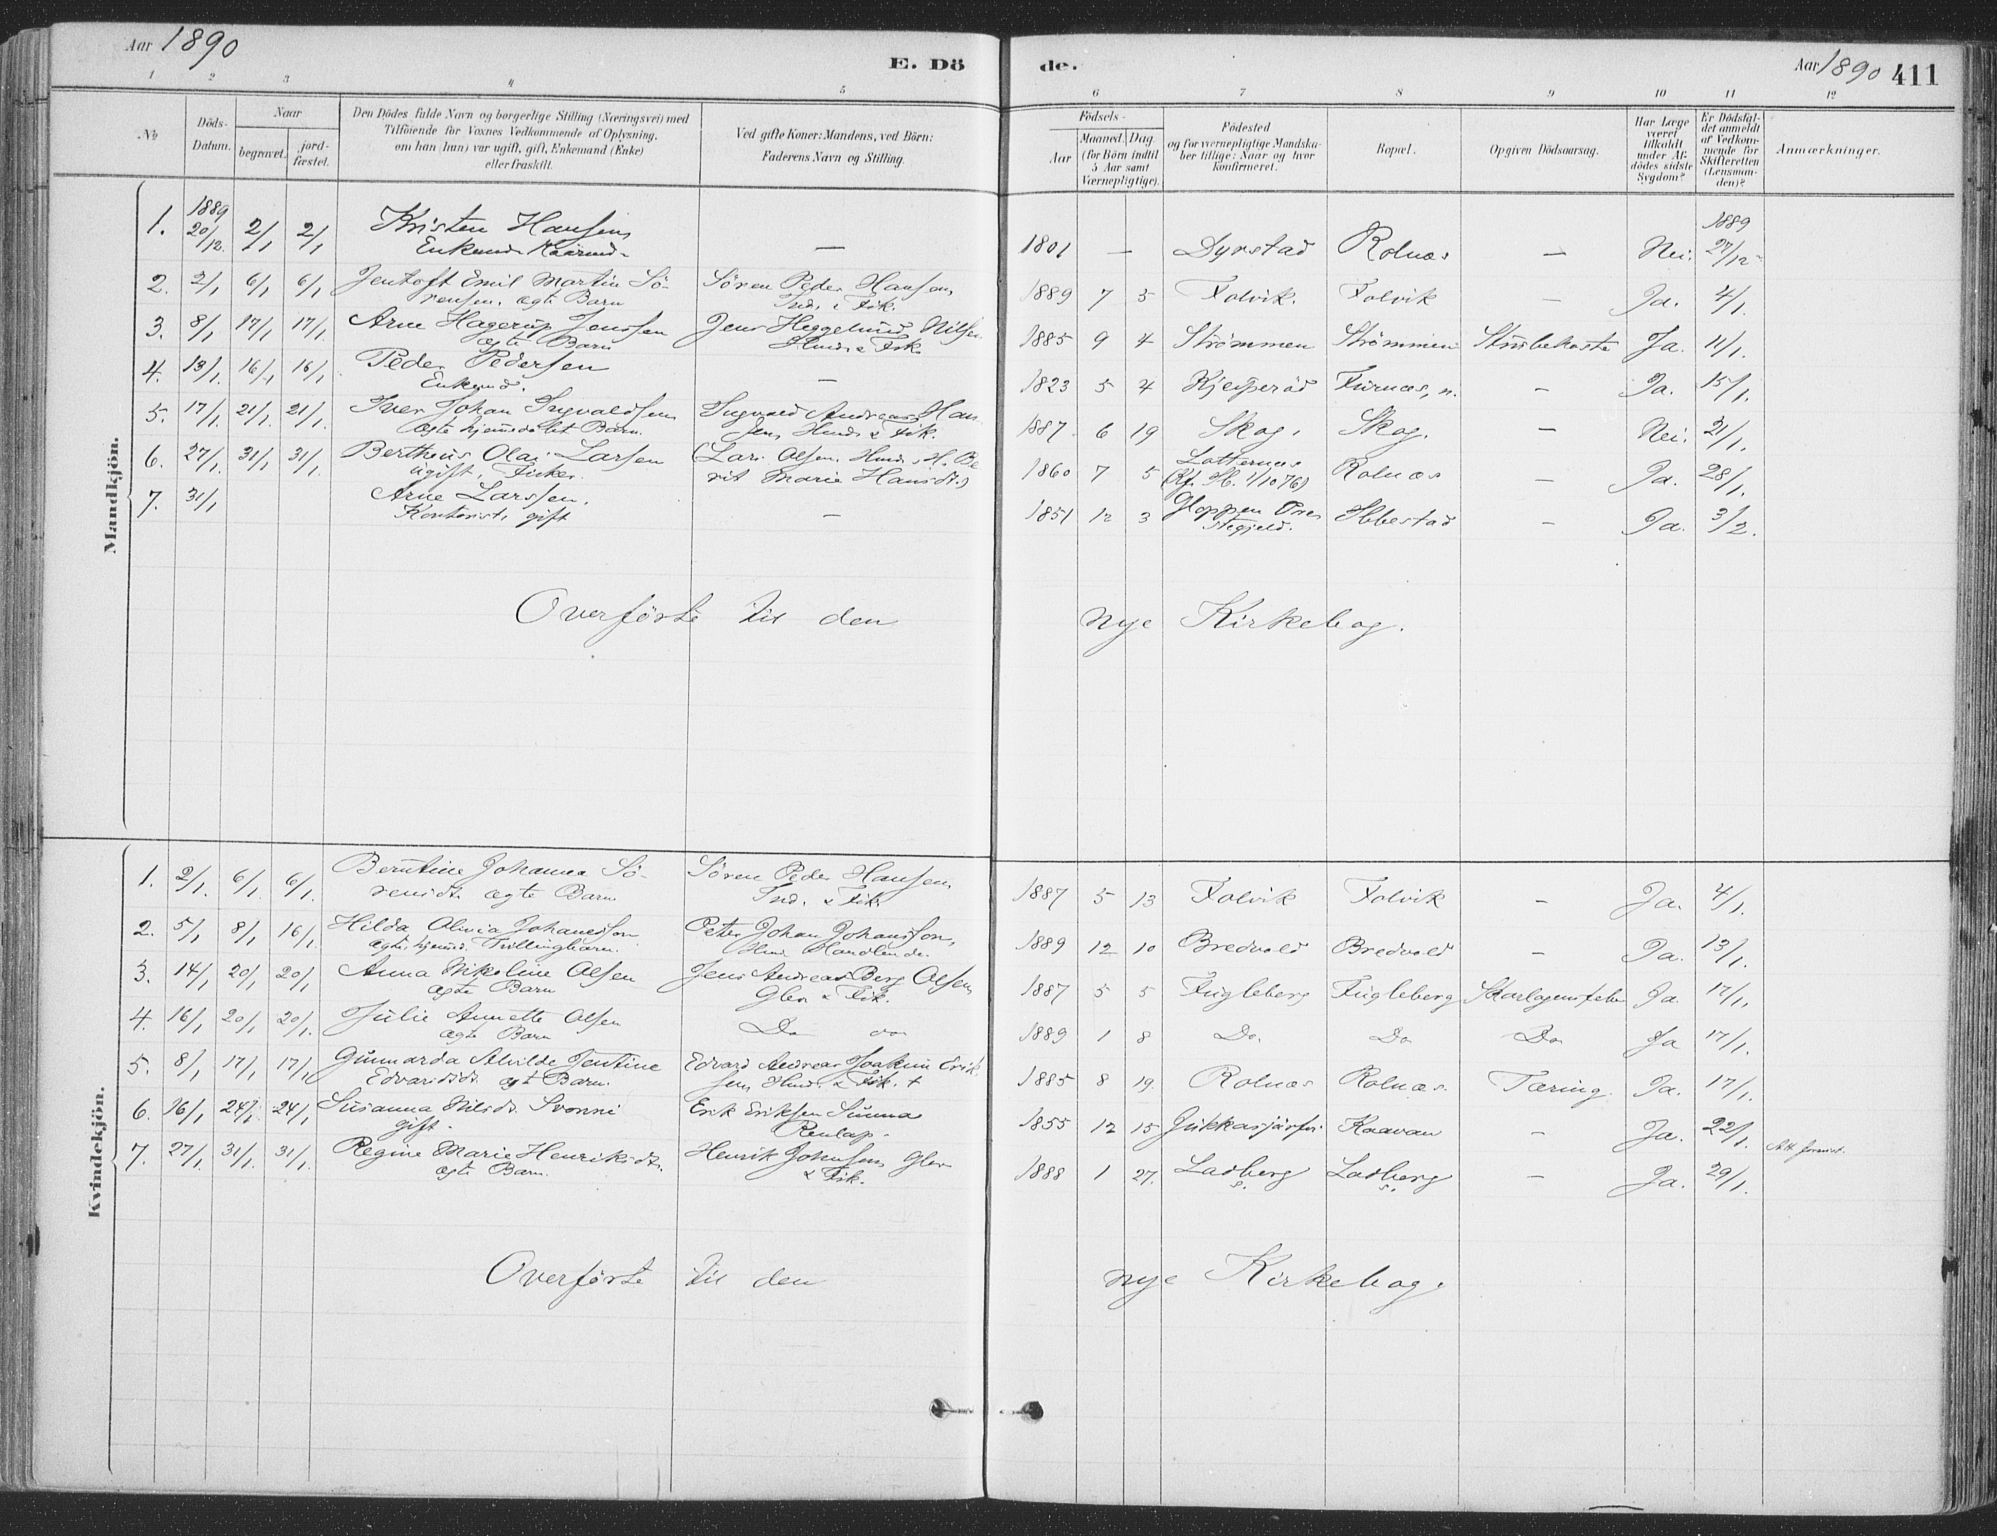 Aar 1890
E. Dö
de.
Aar 1890 411
1 2 3 4 5 6 7 8 9 10 11 12
No
Döds-
Datum.
Naar
begravet.
jord-
fæstet.
Den Dödes fulde Navn og borgerlige Stilling (Næringsvei) med
Tilföiende for Voxnes Vedkommende af Oplysning,
om han (hun) var ugift, gift, Enkemand (Enke)
eller fraskilt.
Ved gifte Koner: Mandens, ved Börn:
Faderens Navn og Stilling.
Födsels-
Aar
Maaned. Dag.
(for Börn indtil
5 Aar samt
Værnepligtige).
Födested
og for værnepligtige Mandska-
ber tillige: Naar og hvor
konfirmeret.
Bopæl.
Opgiven Dödsaarsag.
Har Læge
været
tilkaldt
under Af-
dödes sidste
Sygdom?
Er Dödsfal-
det anmeldt
af Vedkom-
mende for
Skifteretten
(Lensman-
den)?
Anmærkninger.
Mandkjön.
1. 1889 20/12. 2/1 2/1 Kristen Hansen — 1801 — Dyrstad Rolnæs — Nei. 1889 27/12
Enkemd.
2. 2/1 6/1 6/1 Jentoft Emil Martin Sö- Sören Peder Hansen, 1889 7 5 Folvik. Folvik — Ja. 4/1.
rensen, ægte Barn Ind. & Fisk.
3. 8/1 17/1 17/1 Arne Hagerup Jenssen Jens Heggelund Nilsen 1885 9 4 Strömmen Strömmen Strubehoste Ja. 11/1.
ægte Barn Husm. & Fisk.
4. 13/1. 16/1 16/1 Peder Pedersen — 1823 5 4 Furnæs, n. — Ja. 15/1.
Enkemd.
5. 17/1 21/1 21/1 Iver Johan Ingvaldsen Ingvald Andreas Han- 1887 6 19 Skog. Skog. — Nei. 21/1.
ægte hjemmedöbt Barn. sen, Husm. & Fisk.
6. 27/1 31/1 31/1 Bertheus Olai Larsen (Lars Olsen, Husm. & H. Be- 1860 7 5 Rolnæs — Ja. 28/1.
ugift, Fisker. rit Marie Hansdt.) (Kf. Ib. 1/10 76)
7. 31/1 Arne Larssen, — 1851 12 3 Gloppen Præ- Ibbestad — Ja. 3/2.
Kontorist, gift stegjeld.
Overförte til den nye Kirkebog.
Kvindekjön.
1. 2/1. 6/1 6/1. Berntine Johanna Sö- Sören Peder Hansen, 1887 5 13 Folvik Folvik — Ja. 4/1.
rensdt. ægte Barn Ind. & Fisk.
2. 5/1 8/1 16/1. Hilda Olivia Johansson Peter Johan Johansson, 1889 12 10 Bredvold Bredvold — Ja. 13/1.
ægte hjemmd. Tvillingbarn. Husm. Handlende.
3. 14/1 20/1 20/1 Anna Nikoline Olsen Jens Andreas Berg Olsen, 1887 5 5 Fugleberg Fugleberg Skarlagensfeber Ja 17/1.
ægte Barn Gbr. & Fisk.
4. 16/1 20/1 20/1. Julie Annette Olsen Do do 1889 1 8 Do. Do Do Ja 17/1.
ægte Barn
5. 8/1 17/1 17/1 Gunnarda Alvilde Jentine Edvard Andreas Joakim Erik- 1885 8 19. Rolnæs Rolnæs. Tæring. Ja. 17/1.
Edvardsdt. ægt Barn. sen, Husm. & Fisk. +
6. 16/1 24/1 24/1 Susanna Nilsdt. Svonni Erik Eriksen Sunna 1855 12 15 Jukkasjärfvi Kaavan — Ja. 22/1.
gift. Renlap.
7. 27/1. 31/1 31/1 Regine Marie Henriksdt. Henrik Johnsen, Gbr. 1888 1 27. Ladberg Ladberg — Ja. 29/1.
ægte Barn. & Fisk. s. s.
Overförte til den nye Kirkebog.